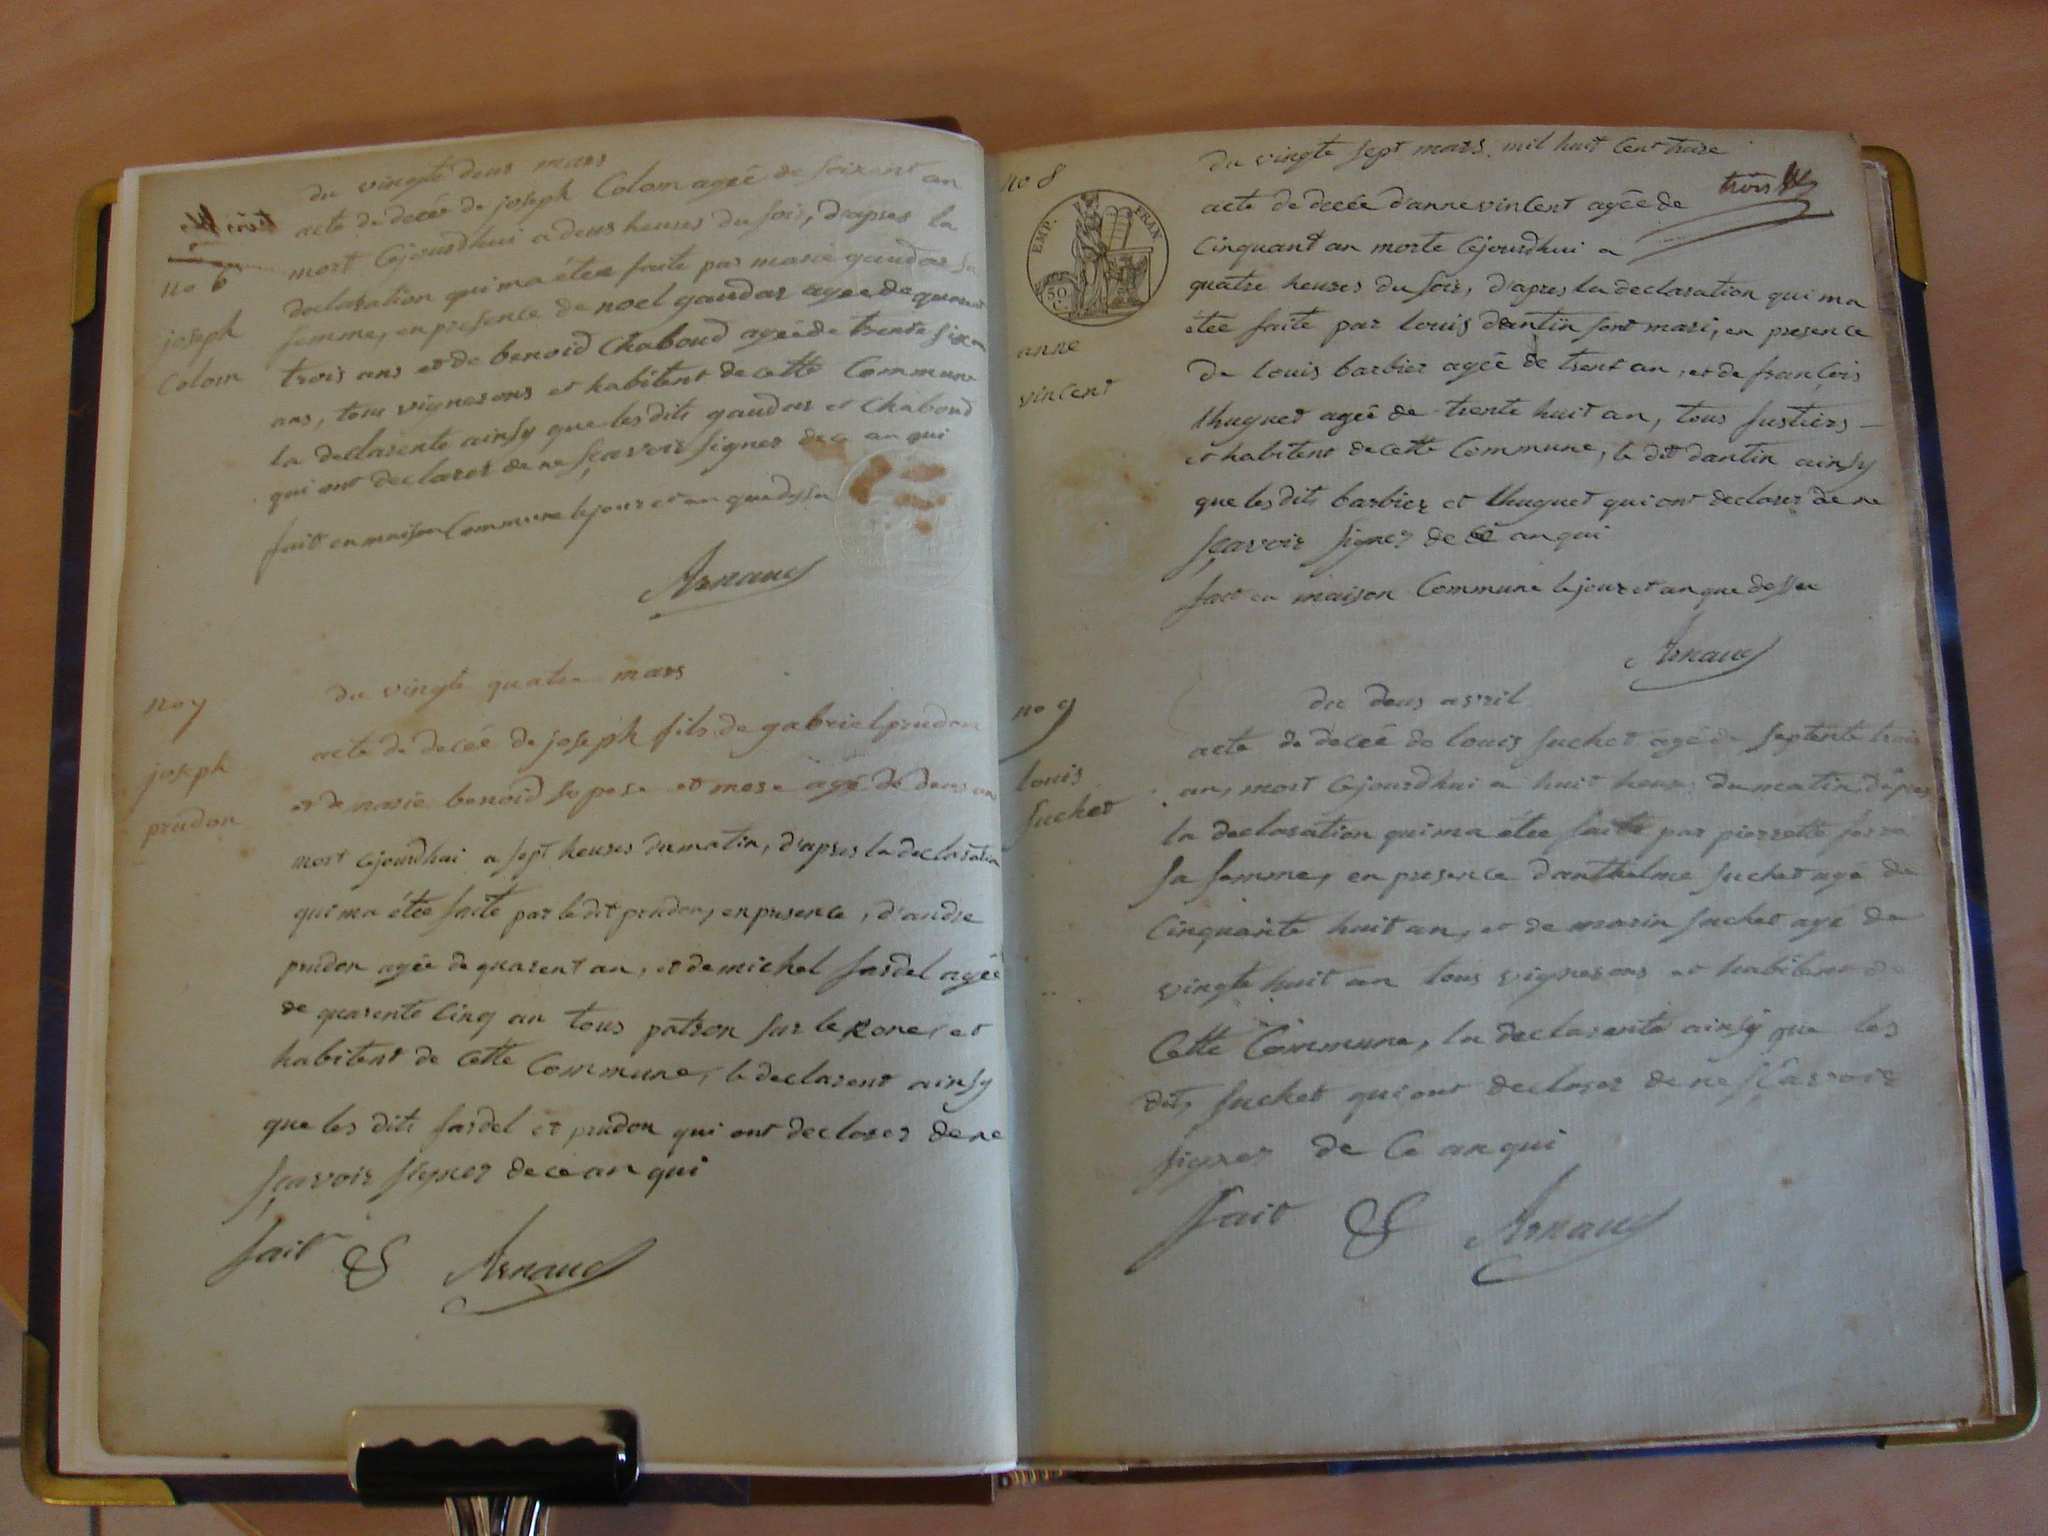 du vingte deus mars
acte de decée de joseph Colom agée de soixant an
mort Cejourdhui a deus heures du soir, d'apres la
declaration qui ma étee faite par marie gaudar sa
femme, en presence de noel gaudar agée de quarent
trois ans et de benoid Chaboud agée de trente six
ans, tous vignerons et habitent de cette Commune
la declarente ainsy que les dits gaudar et Chaboud
qui ont declarer de ne sçavoir signer de ce an qui
fait en maison Commune le jour et an que dessu
Arnaud
trois
no 6
joseph
Colom
du vingte quatre mars
acte de decée de joseph fils de gabriel prudon
et de marie benoid so pere et mere agé de deus an
mort Cejourdhui a sept heures du matin, d'apres la declaration
qui ma étee faite par le dit prudon, en presence, d'andre
prudon agée de quarent an, et de michel fardel agée
de quarente Cinq an tous patron sur le Rone, et
habitent de Cette Commune, le declarent ainsy
que les dits fardel et prudon qui ont declarer de ne
sçavoir signer de ce an qui
fait & Arnaud
no 7
joseph
prudon
du vingte sept mars mil huit Cent traze
trois
acte de decée d'anne vincent agée de
Cinquant an morte Cejourdhui a
quatre heures du soir, d'apres la declaration qui ma
étee faite par louis dantin sont mari, en presence
de louis barbier agée de trent an, et de françois
thuguet agée de trente huit an, tous fustiers
et habitent de cette Commune, le dit dantin ainsy
que les dits barbier et thuguet qui ont declarer de ne
sçavoir signer de ce an qui
fait en maison Commune le jour et an que dessu
Arnaud
no 8
EMP. FRAN
50
C
anne
vincent
du deus avril
acte de decée de louis suchet agé de septente trois
an, mort Cejourdhui a huit heur du matin, d'apres
la declaration qui ma étee faite par pierrette
sa femme, en presence d'anthelme suchet agé de
Cinquante huit an, et de marin suchet agé de
vingte huit an tous vignerons et habitent de
Cette Commune, la declarente ainsy que les
dits suchet qui ont declarer de ne sçavoir
signer de Ce an qui
fait & Arnaud
no 9
louis
suchet